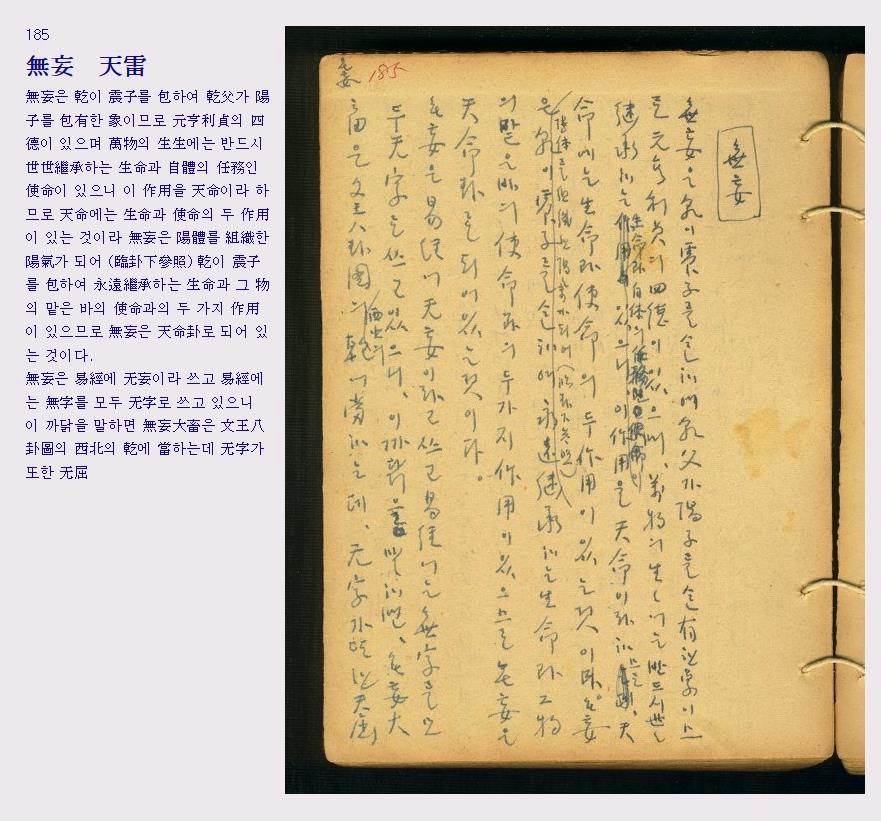 185
無妄 天雷
無妄은 乾이 震子를 包하여 乾父가 陽
子를 包有한 象이므로 元亨利貞의 四
德이 있으며 萬物의 生生에는 반드시
世世繼承하는 生命과 自體의 任務인
使命이 있으니 이 作用을 天命이라 하
므로 天命에는 生命과 使命의 두 作用
이 있는 것이라 無妄은 陽體를 組織한
陽氣가 되어 (臨卦下參照) 乾이 震子
를 包하여 永遠繼承하는 生命과 그 物
의 맡은 바의 使命과의 두 가지 作用
이 있으므로 無妄은 天命卦로 되어 있
는 것이다.
無妄은 易經에 无妄이라 쓰고 易經에
는 無字를 모두 无字로 쓰고 있으니
이 까닭을 말하면 無妄大畜은 文王八
卦圖의 西北의 乾에 當하는데 无字가
또한 无屈
無妄 185
無妄
無妄은 乾이 震子를 包하여 乾父가 陽子를 包有한 象이므
로 元亨利貞의 四德이 있으며, 萬物의 生生에는 반드시 世世
継承하는 生命과 自体의 任務인 使命이 있으니 이 作用을 天命이라 하므로, 天
命에는 生命과 使命의 두 作用이 있는 것이라. 無妄
은 陽体를 組織한 陽氣가 되어 (臨卦下參照) 乾이 震子를 包하여 永遠継承하는 生命과 그 物
의 맡은 바의 使命과의 두 가지 作用이 있으므로 無妄은
天命卦로 되어 있는 것이다.
無妄은 易經에 无妄이라고 쓰고 易經에는 無字를 모
두 无字로 쓰고 있으니, 이 까닭을 말하면, 無妄大
畜은 文王八卦圖의 西北의 乾에 當하는데, 无字가 또한 天屈